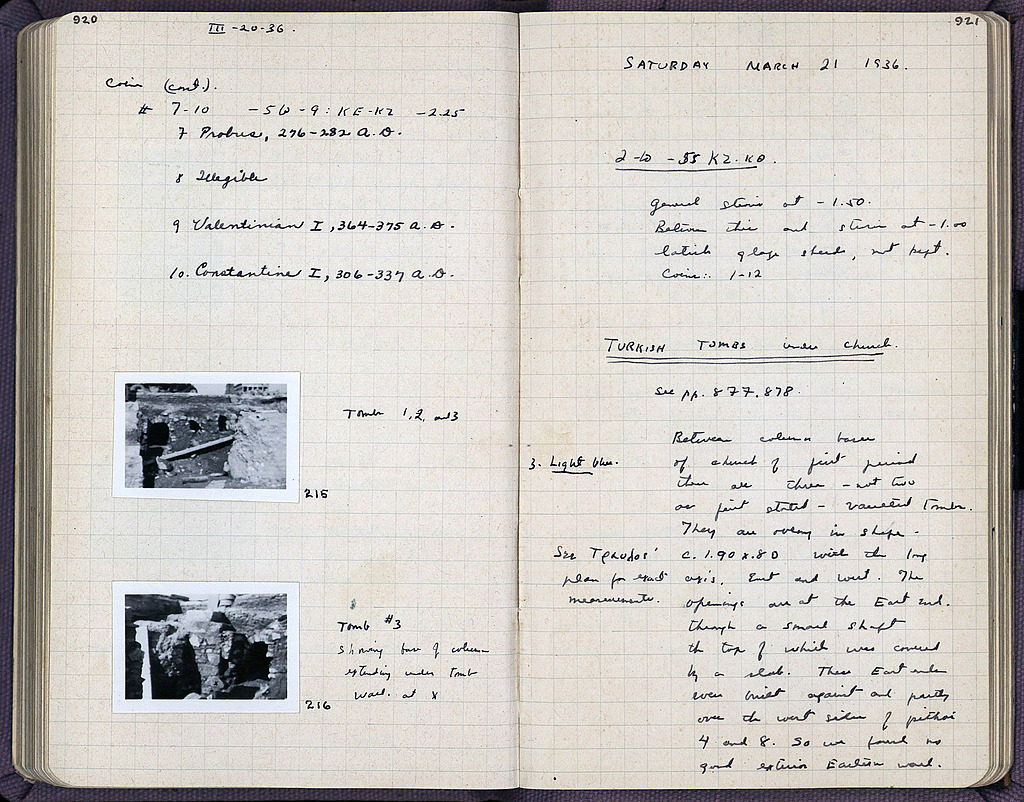 920
III-20-36.
Coins (cont.).
# 7-10 -SW-9: KE-KZ -2.25
7 Probus, 276-282 A.D.
8 Illegible
9 Valentinian I, 364-375 A.D.
10. Constantine I, 306-337 A.D.
Tombs 1, 2, and 3
215
Tomb #3
Showing base of column
extending under tomb
wall. at x
216
921
SATURDAY MARCH 21 1936.
KZ. KΘ.
General strosis at -1.50.
Between this and strosis at -1.00
latish glaze sherds, not kept.
Coins: 1-12
TURKISH TOMBS under church.
See pp. 877, 878.
3. Light blue.
Between column bases
of church of first period
there are three - not two
as first stated - vaulted tombs.
They are oblong in shape.
See plan for exact measurements.
c. 1.90 x .80 with the long
axis, East and west. The
openings are at the East end.
through a small shaft
the top of which was covered
by a slab. These East ends
were built against and partly
over the west sides of pithoi
4 and 8. So we found no
good exterior Eastern wall.